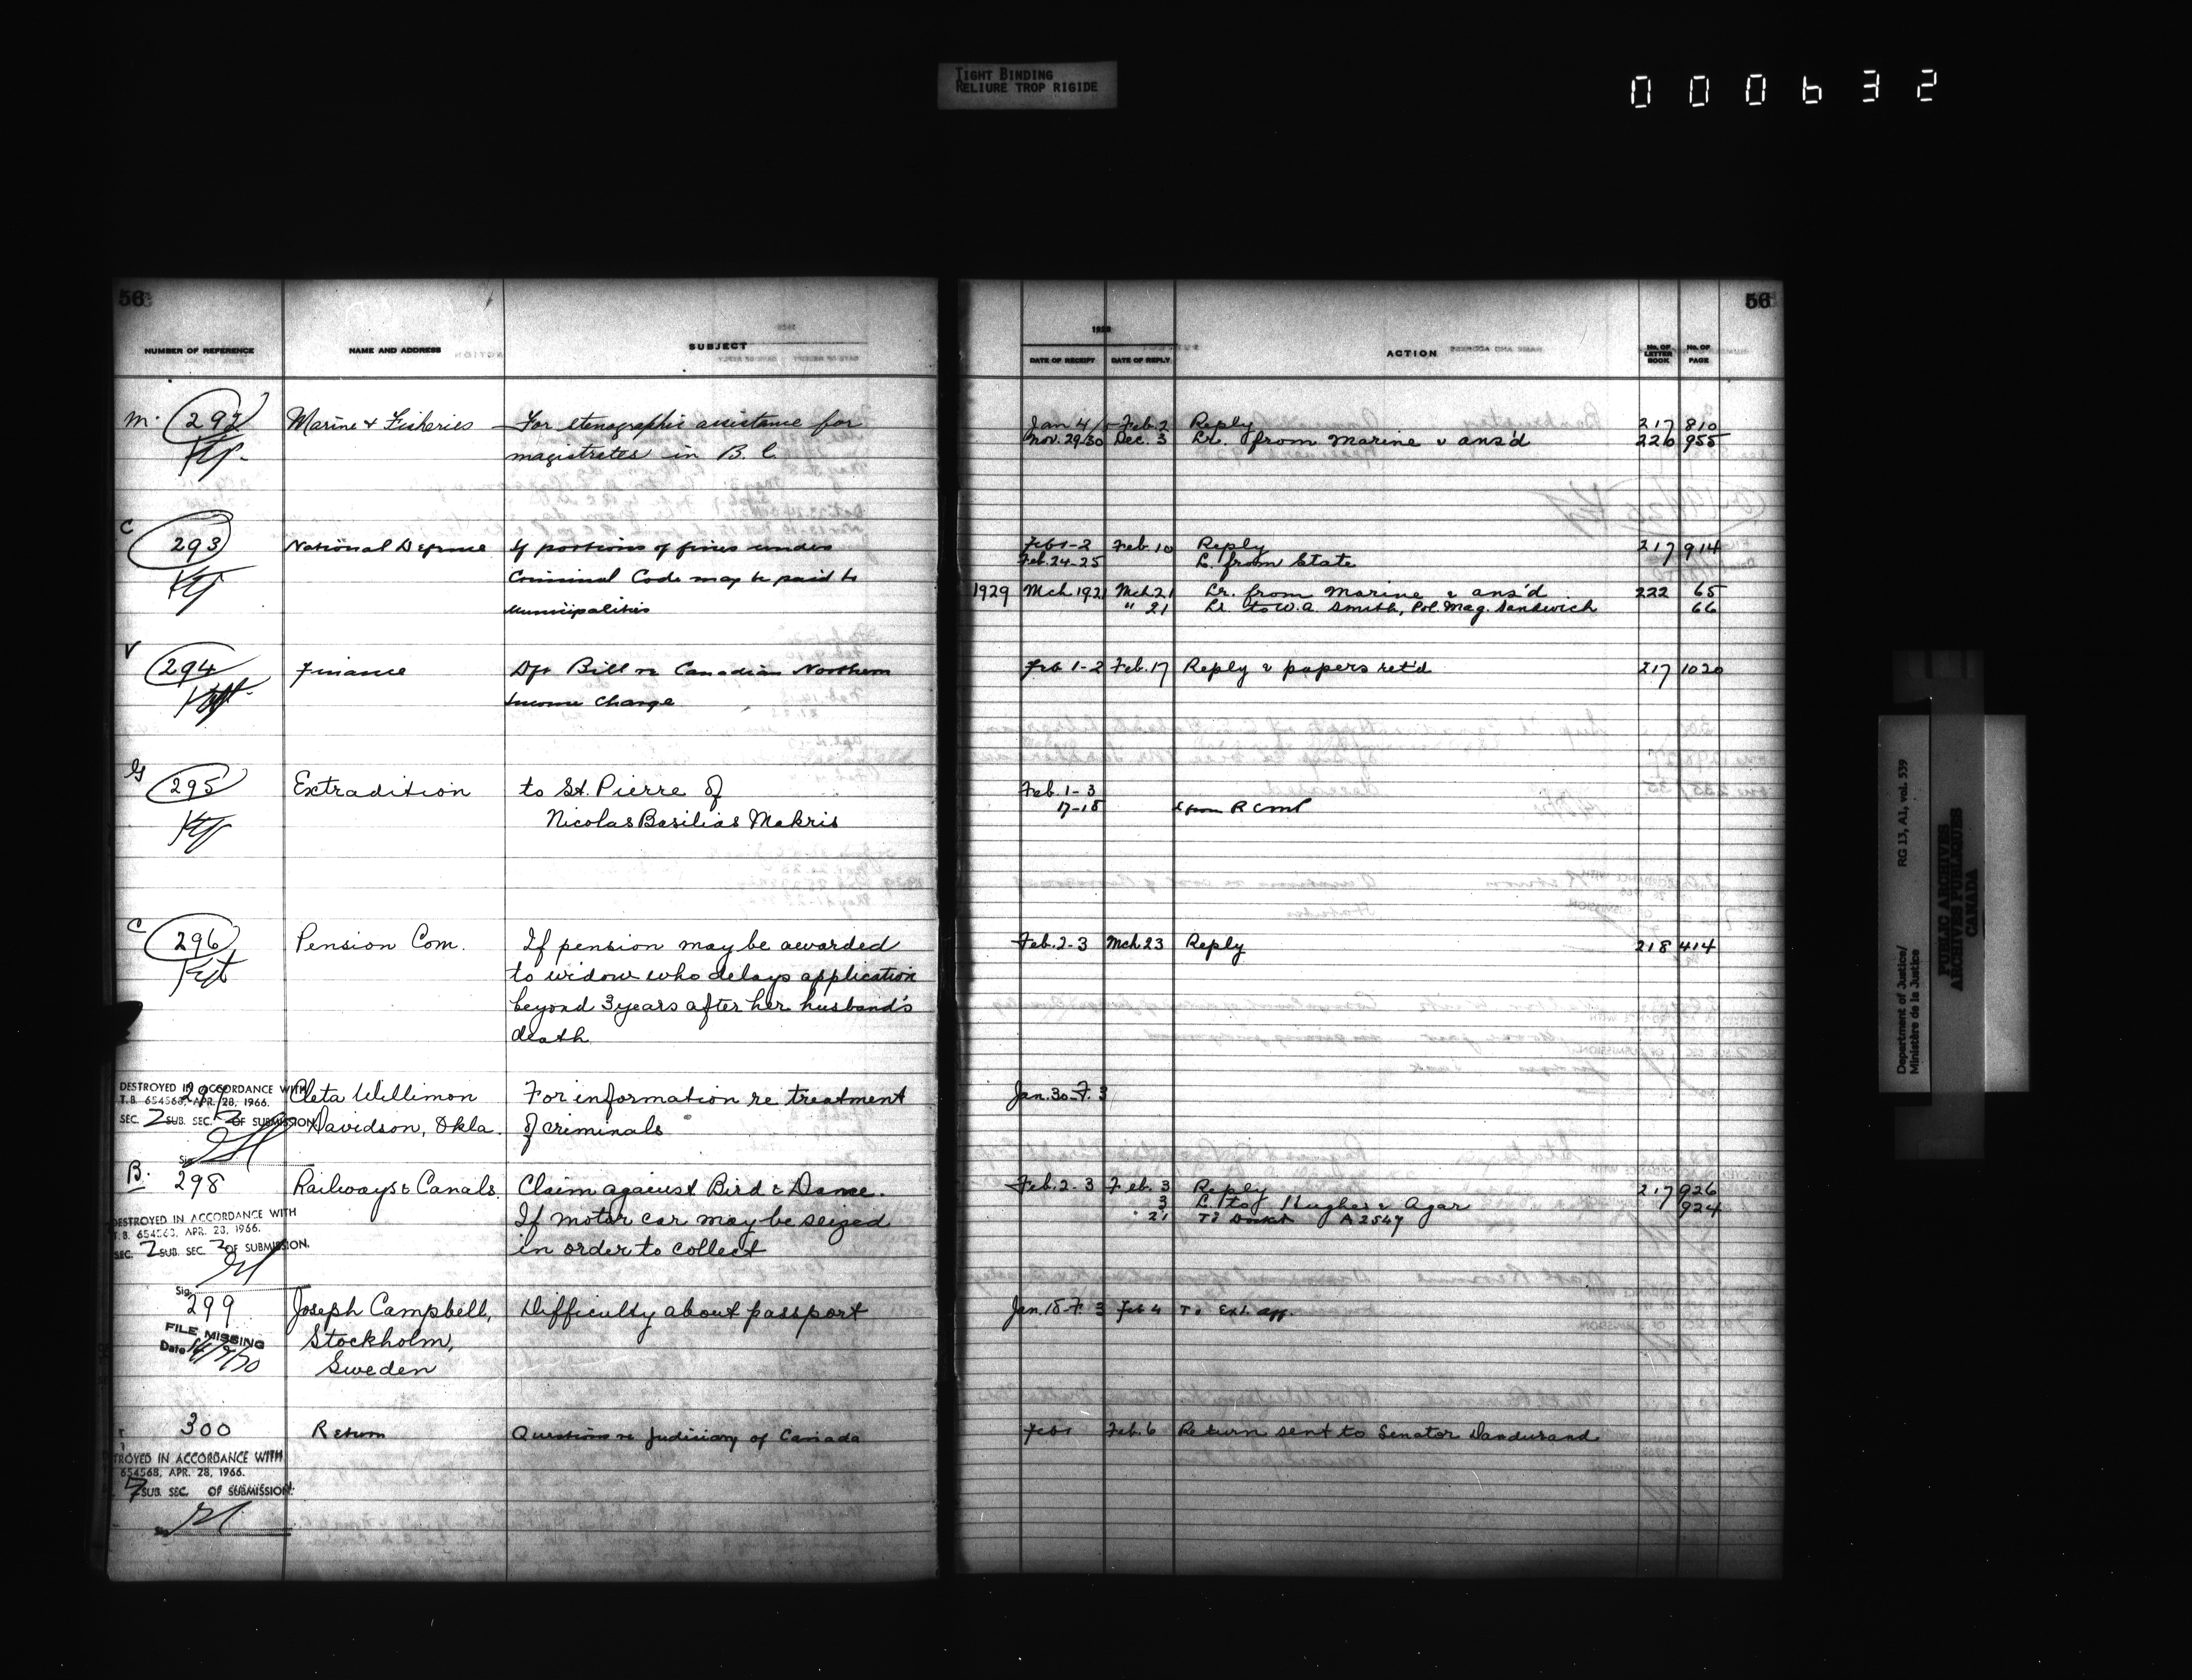 TIGHT BINDING
RELIURE TROP RIGIDE
000632
56
NUMBER OF REFERENCE NAME AND ADDRESS SUBJECT
M. 292 Marine & Fisheries For stenographic assistance for
magistrates in B.C.
C 293 National Defence If portions of fines under
Criminal Code may be paid to
Municipalities
V 294 Finance Dft Bill re Canadian Northern
Income Charge
G 295 Extradition to St. Pierre of
Nicolas Basilias Makris
C 296 Pension Com. If pension may be awarded
to widow who delays application
beyond 3 years after her husband's
death
DESTROYED IN ACCORDANCE WITH
T.B. 654568, APR. 28, 1966.
SEC. 2 SUB. SEC. 2 OF SUBMISSION
Sig.
297 Cleta Willimon For information re treatment
Davidson, Okla. of criminals
B. 298 Railways & Canals. Claim against Bird & Dame.
If motor car may be seized
in order to collect
DESTROYED IN ACCORDANCE WITH
T.B. 654568, APR. 28, 1966.
SEC. 2 SUB. SEC. 2 OF SUBMISSION.
Sig.
299 Joseph Campbell, Difficulty about passport
Stockholm,
Sweden
FILE MISSING
Date
300 Return Questions re Judiciary of Canada
TROYED IN ACCORDANCE WITH
654568, APR. 28, 1966.
7 SUB. SEC. OF SUBMISSION.
56
1928
DATE OF RECEIPT DATE OF REPLY ACTION No. OF LETTER BOOK No. OF PAGE
Jan 4/ Feb. 2 Reply 217 810
Nov. 29/30 Dec. 3 Lr. from Marine & ans'd 226 955
Feb 1-2 Feb. 10 Reply 217 914
Feb. 24-25 L. from State
1929 Mch 19 21 Mch 21 Lr. from Marine & ans'd 222 65
" 21 Lr to W.A. Smith, Pol. Mag. Sandwich 66
Feb 1-2 Feb. 17 Reply & papers ret'd 217 1020
Feb. 1-3
17-18 L from RCMP
Feb. 2-3 Mch 23 Reply 218 414
Jan. 30-F. 3
Feb. 2-3 Feb. 3 Reply 217 926
3 L. to Hughes & Agar 924
21 To Docket A 2547
Jan. 18-F 3 Feb 4 To Ext. Aff.
Feb 1 Feb. 6 Return sent to Senator Dandurand
Department of Justice/ RG 13, A1, vol. 539
Ministère de la Justice
PUBLIC ARCHIVES
ARCHIVES PUBLIQUES
CANADA